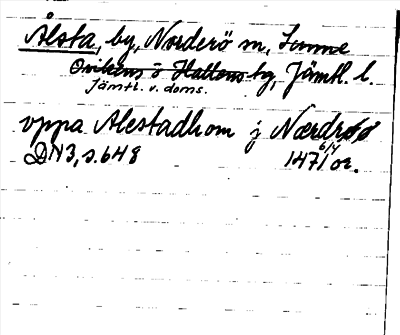 Ålsta, by, Norderö sn, Sunne
Ovikens o Hallens tg, Jämtl. l.
Jämtl. v. doms.
vppa Alestadhom j Nærdrøø
DN3, s. 648 1471 6/4 or.